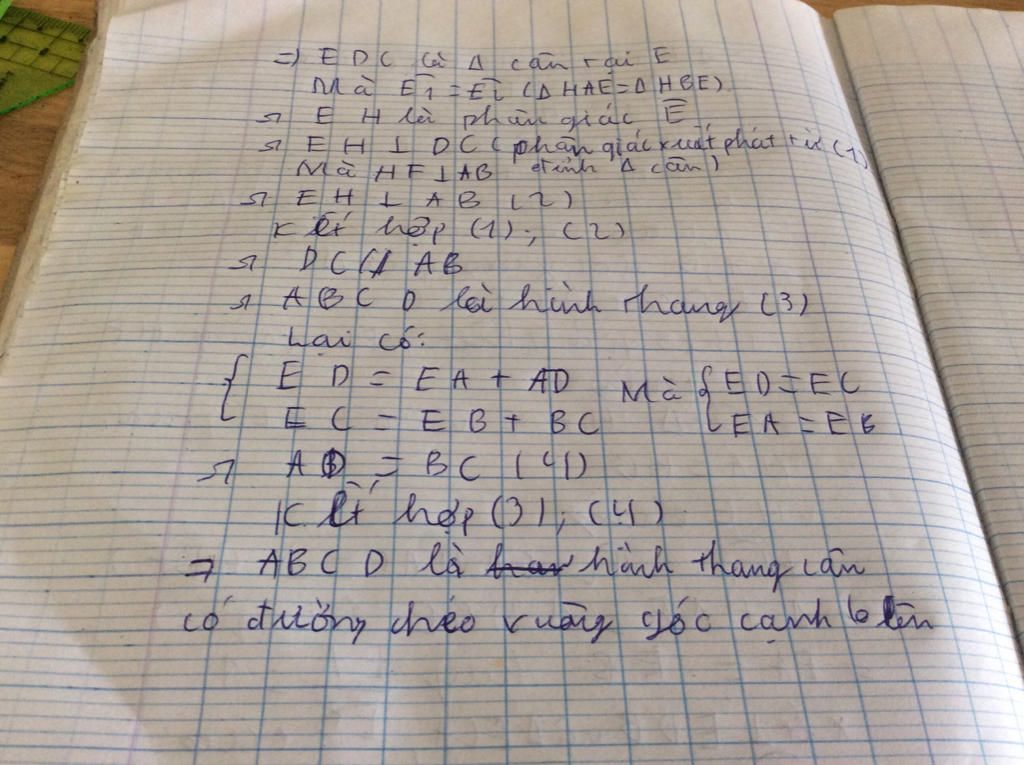 => EDC là Δ cân tại E
Mà Ê1 = Ê2 (ΔHAE = ΔHBE)
=> EH là phân giác Ê
=> EH ⊥ DC (phân giác xuất phát từ (1)
Mà HF ⊥ AB đỉnh Δ cân)
=> EH ⊥ AB (2)
Kết hợp (1); (2)
=> DC // AB
=> ABCD là hình thang (3)
Lại có:
{ ED = EA + AD Mà { ED = EC
EC = EB + BC EA = EB
=> AD = BC (4)
Kết hợp (3); (4)
=> ABCD là hành thang cân
có đường chéo vuông góc cạnh bên